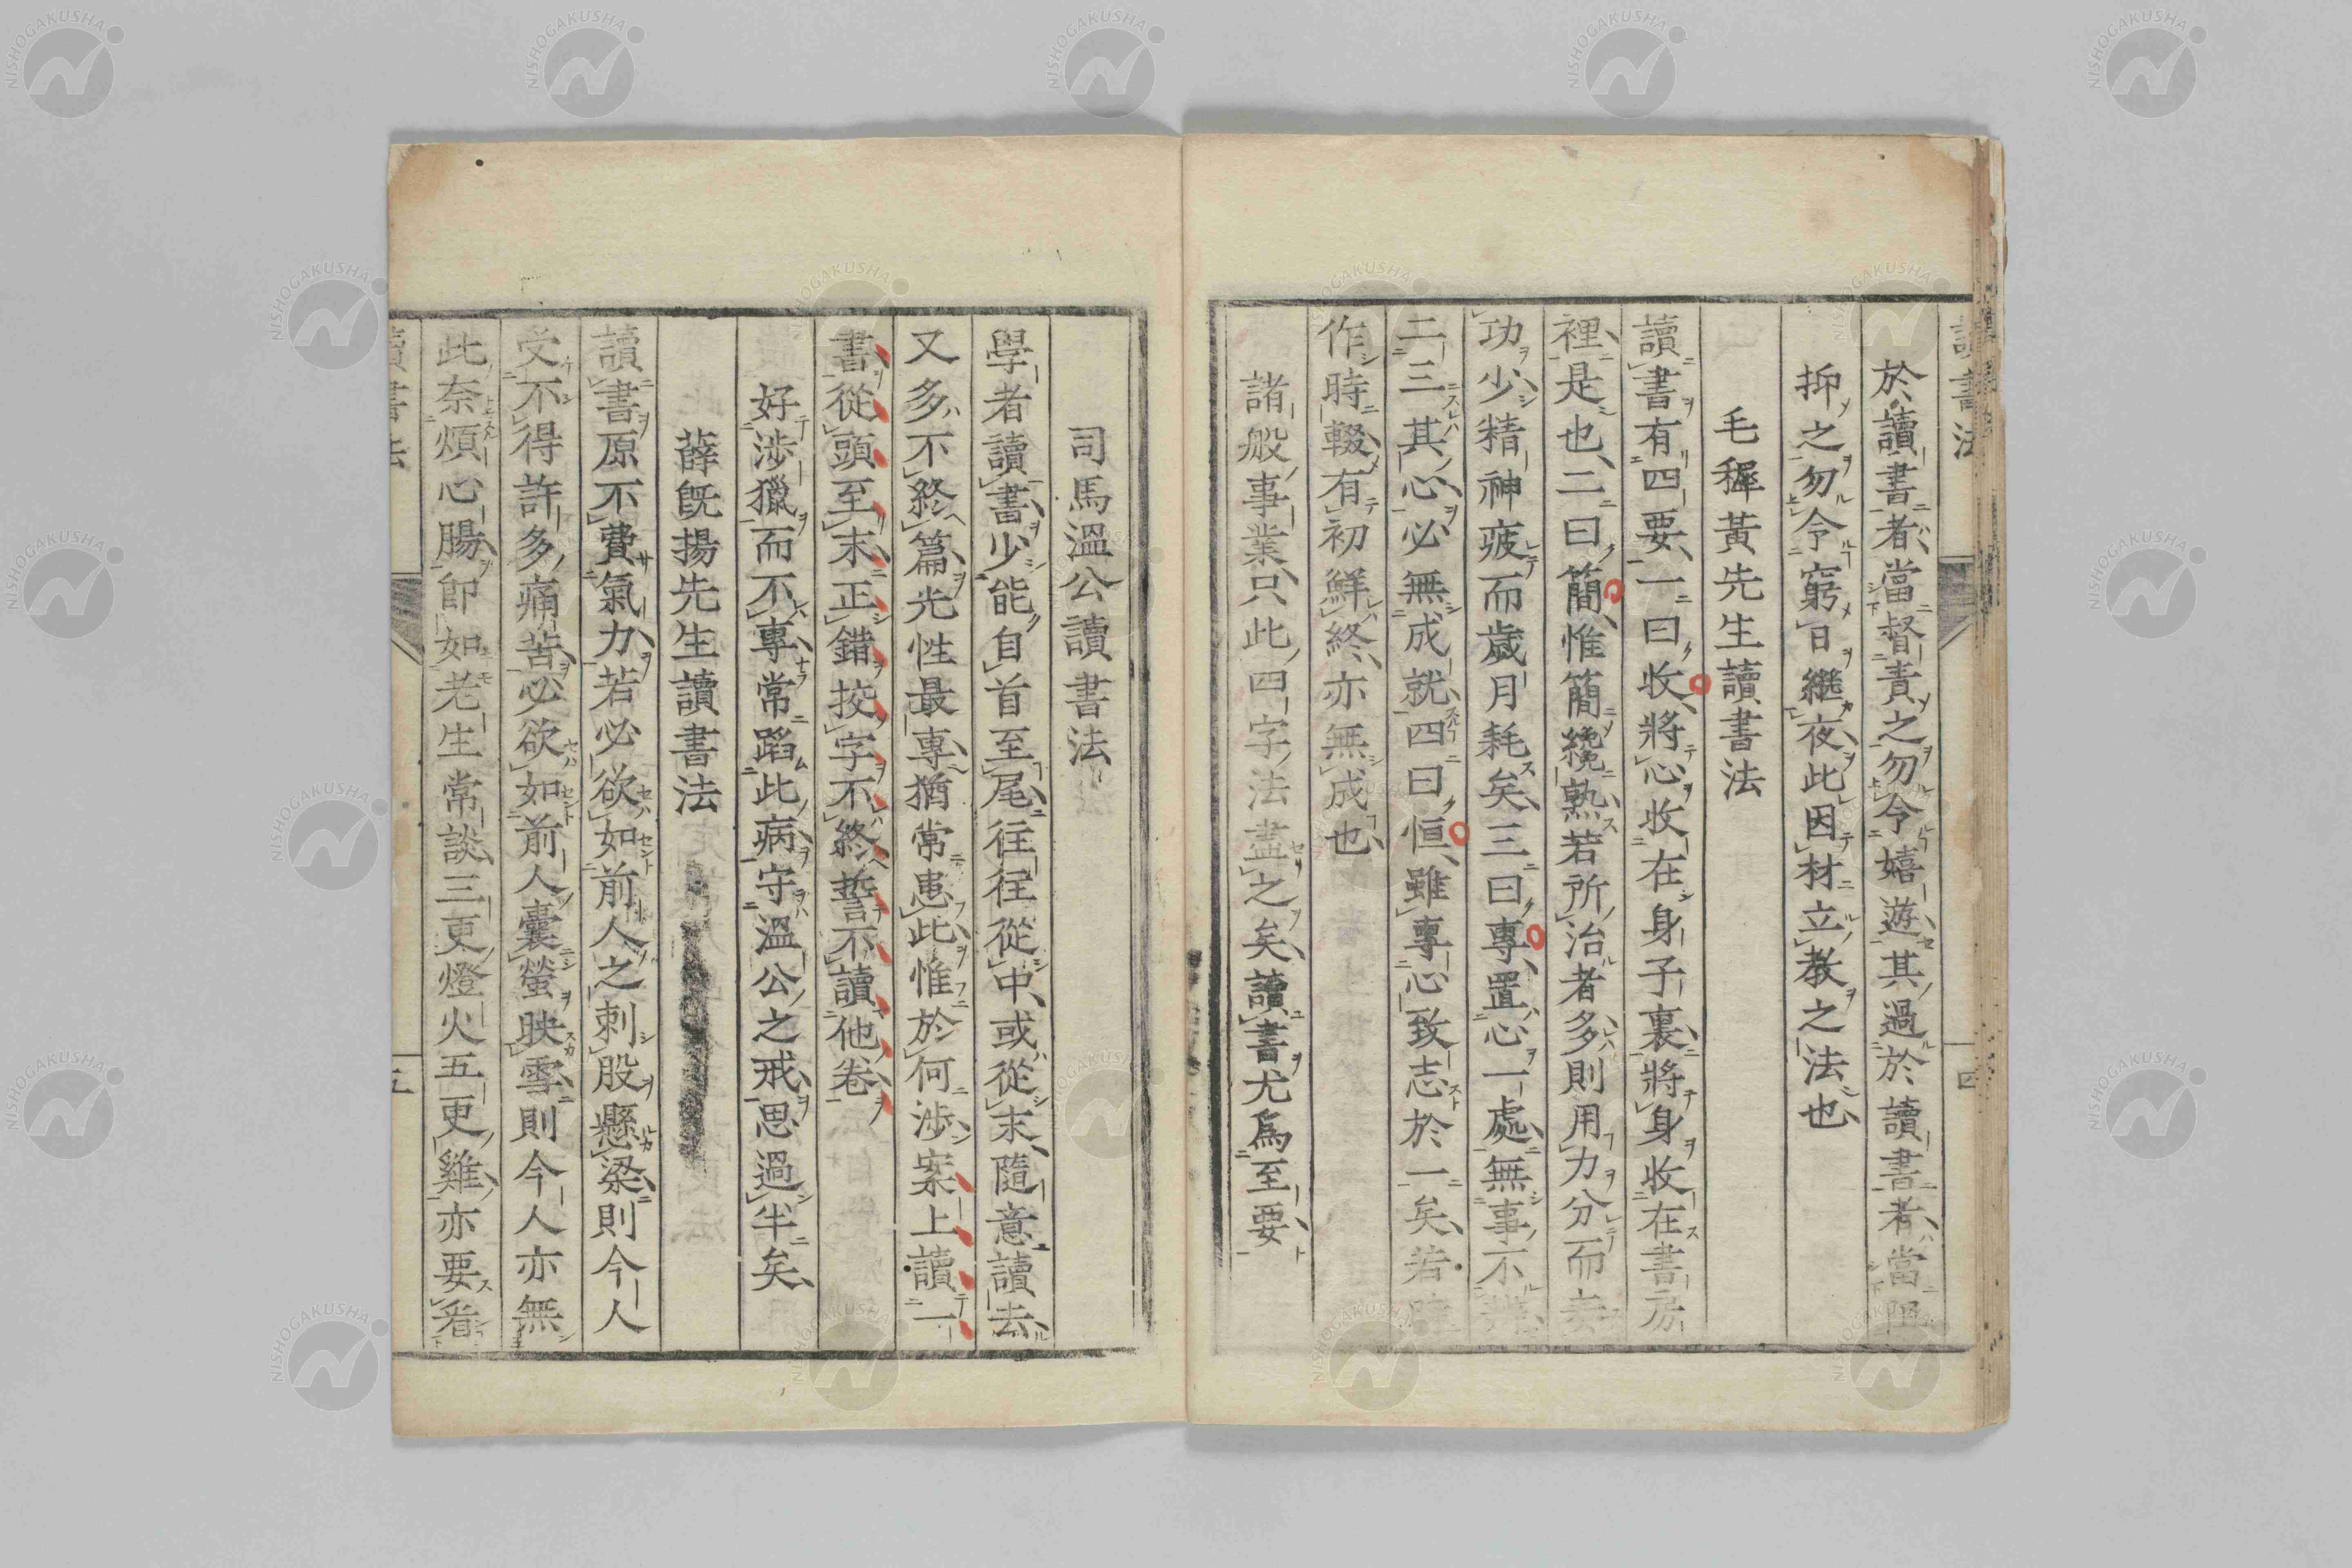 讀書法
四
於讀書者當督責之勿令嬉遊其過於讀書者當阻
抑之勿令窮日繼夜此因材立教之法也
毛穉黃先生讀書法
讀書有四要一曰收將心收在身子裏將身收在書房
裡是也二曰簡惟簡纔熟若所治者多則用力分而奏
功少精神疲而歲月耗矣三曰專置心一處無事不辨
二三其心必無成就四曰恒雖專心致志於一矣若時
作時輟有初鮮終亦無成也
諸般事業只此四字法盡之矣讀書尤爲至要
司馬溫公讀書法
學者讀書少能自首至尾往往從中或從末隨意讀去
又多不終篇光性最專猶常患此惟於何涉案上讀一
書從頭至末正錯挍字不終誓不讀他卷
好涉獵而不專常蹈此病守溫公之戒思過半矣
薛旣揚先生讀書法
讀書原不費氣力若必欲如前人之刺股懸梁則今人
受不得許多痛苦必欲如前人囊螢映雪則今人亦無
此奈煩心腸卽如老生常談三更燈火五更雞亦要看
讀書法
五
NISHOGAKUSHA